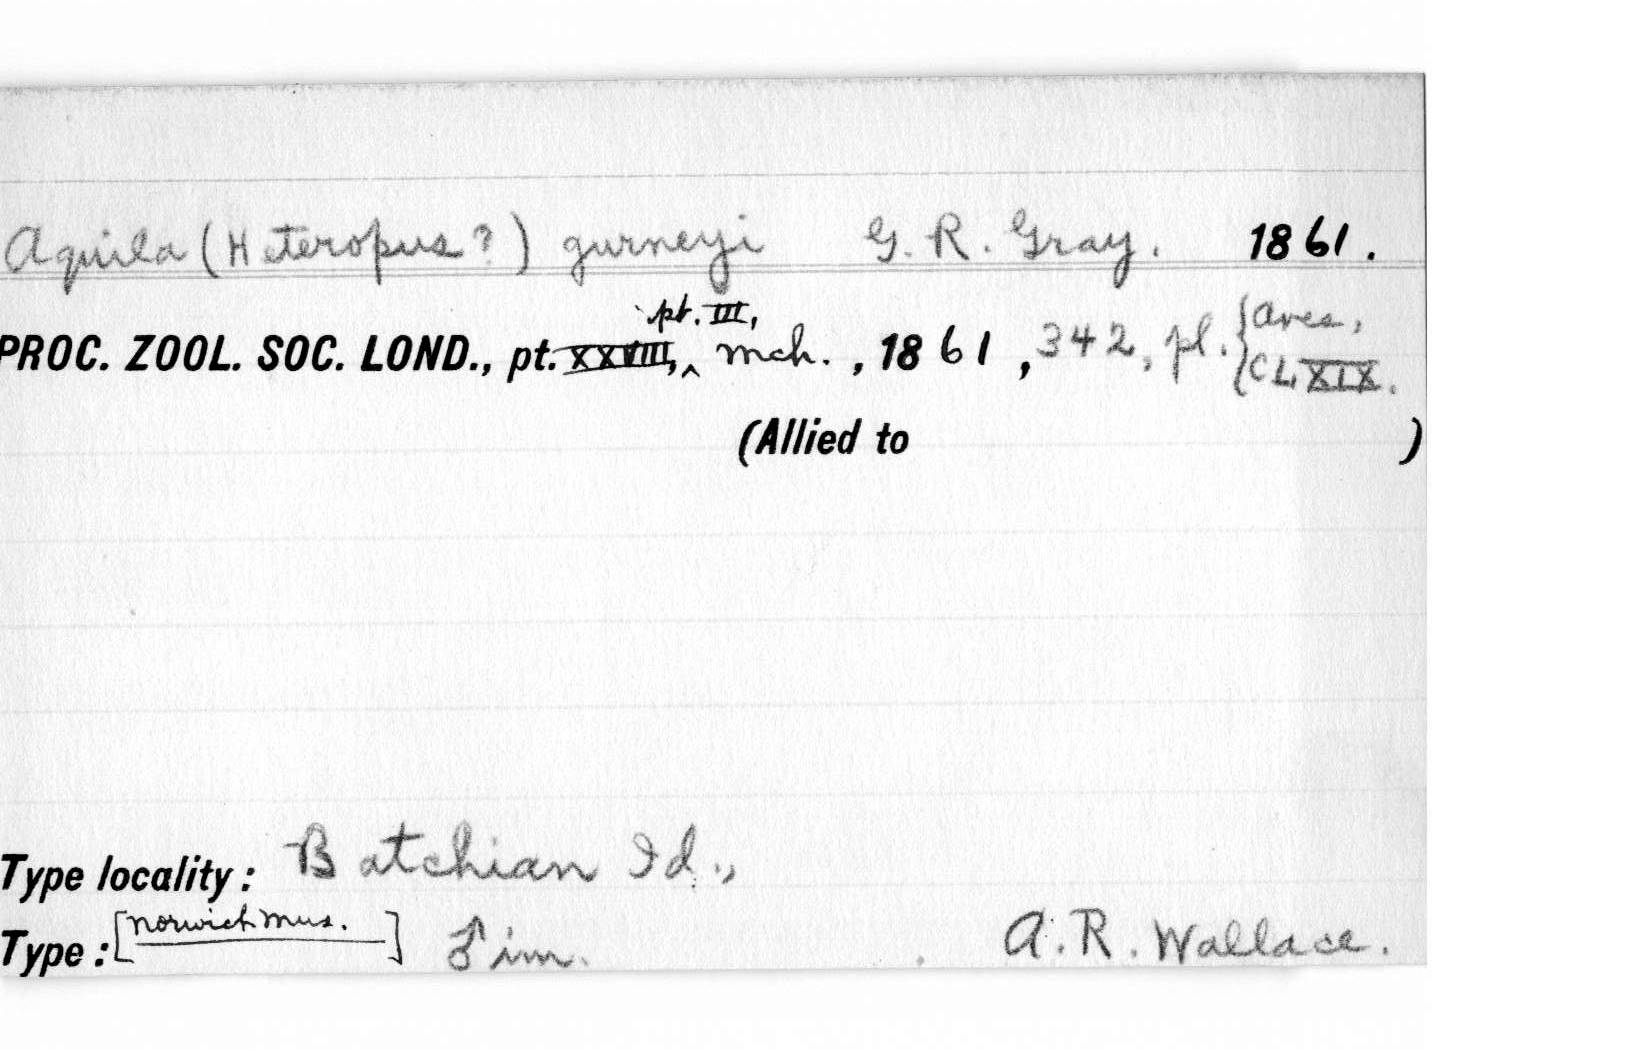 Aquila (Heteropus?) gurneyi G. R. Gray. 1861.
pt. III,
PROC. ZOOL. SOC. LOND., pt. XXVIII, ‸ mch. , 1861 , 342, pl. { Aves, CLXIX.
(Allied to )
Type locality: Batchian Id.,
Type: [Norwich Mus. ] ♂ im. A. R. Wallace.